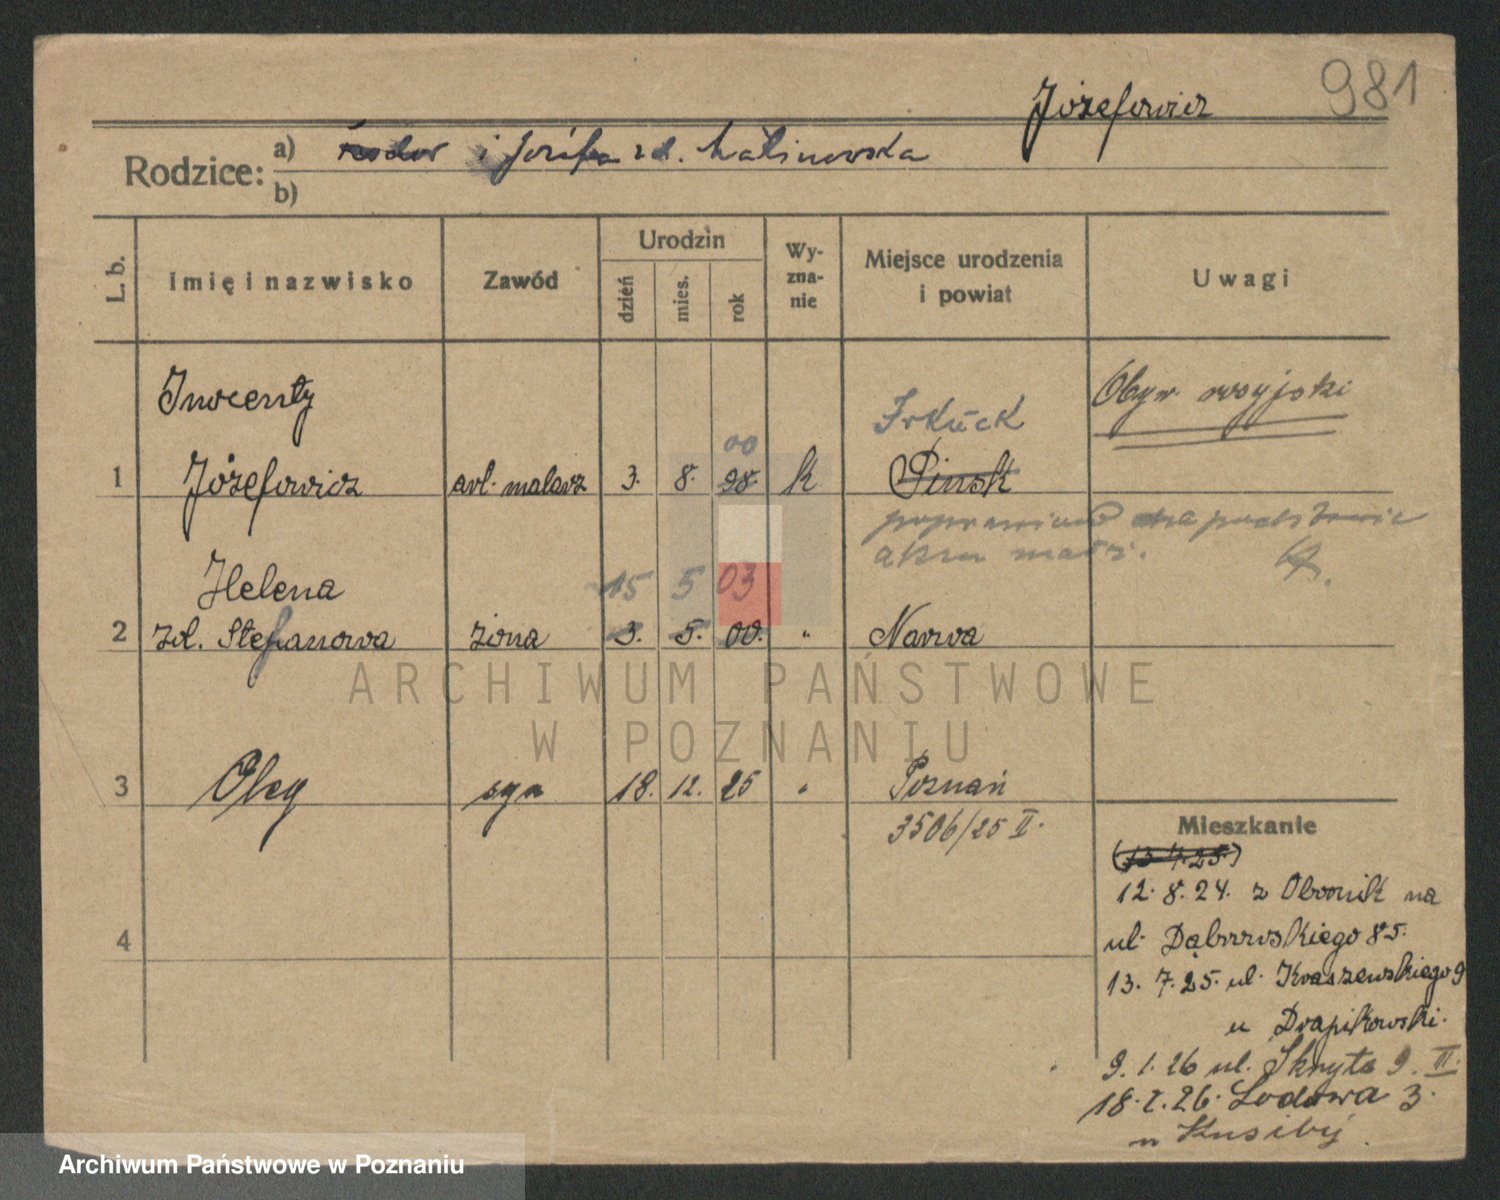 981
Józefowicz
Rodzice:
a) Teodor i Józefa zd. Malinowska
b)
L. b.
Imię i nazwisko
Zawód
Urodzin
dzień
mies.
rok
Wy-
zna-
nie
Miejsce urodzenia
i powiat
Uwagi
Inocenty
Irkuck
Obyw. rosyjski
00
1 Józefowicz art. malarz 3. 8. 98. k Pinsk
poprawiono na podstawie
aktu małż.
Helena 15 5 03
2 zd. Stefanowa żona 3. 5. 00. " Narva
3 Oleg syn 18. 12. 25 " Poznań
3506/25 II.
4
Mieszkanie
(13.7.25.)
12. 8. 24. z Obornik na
ul. Dąbrowskiego 85.
13. 7. 25. ul. Kraszewskiego 9
u Drapikowski.
9. 1. 26 ul. Skryta 9. II.
18. 2. 26. Lodowa 3.
u
ARCHIWUM PAŃSTWOWE
W POZNANIU
Archiwum Państwowe w Poznaniu